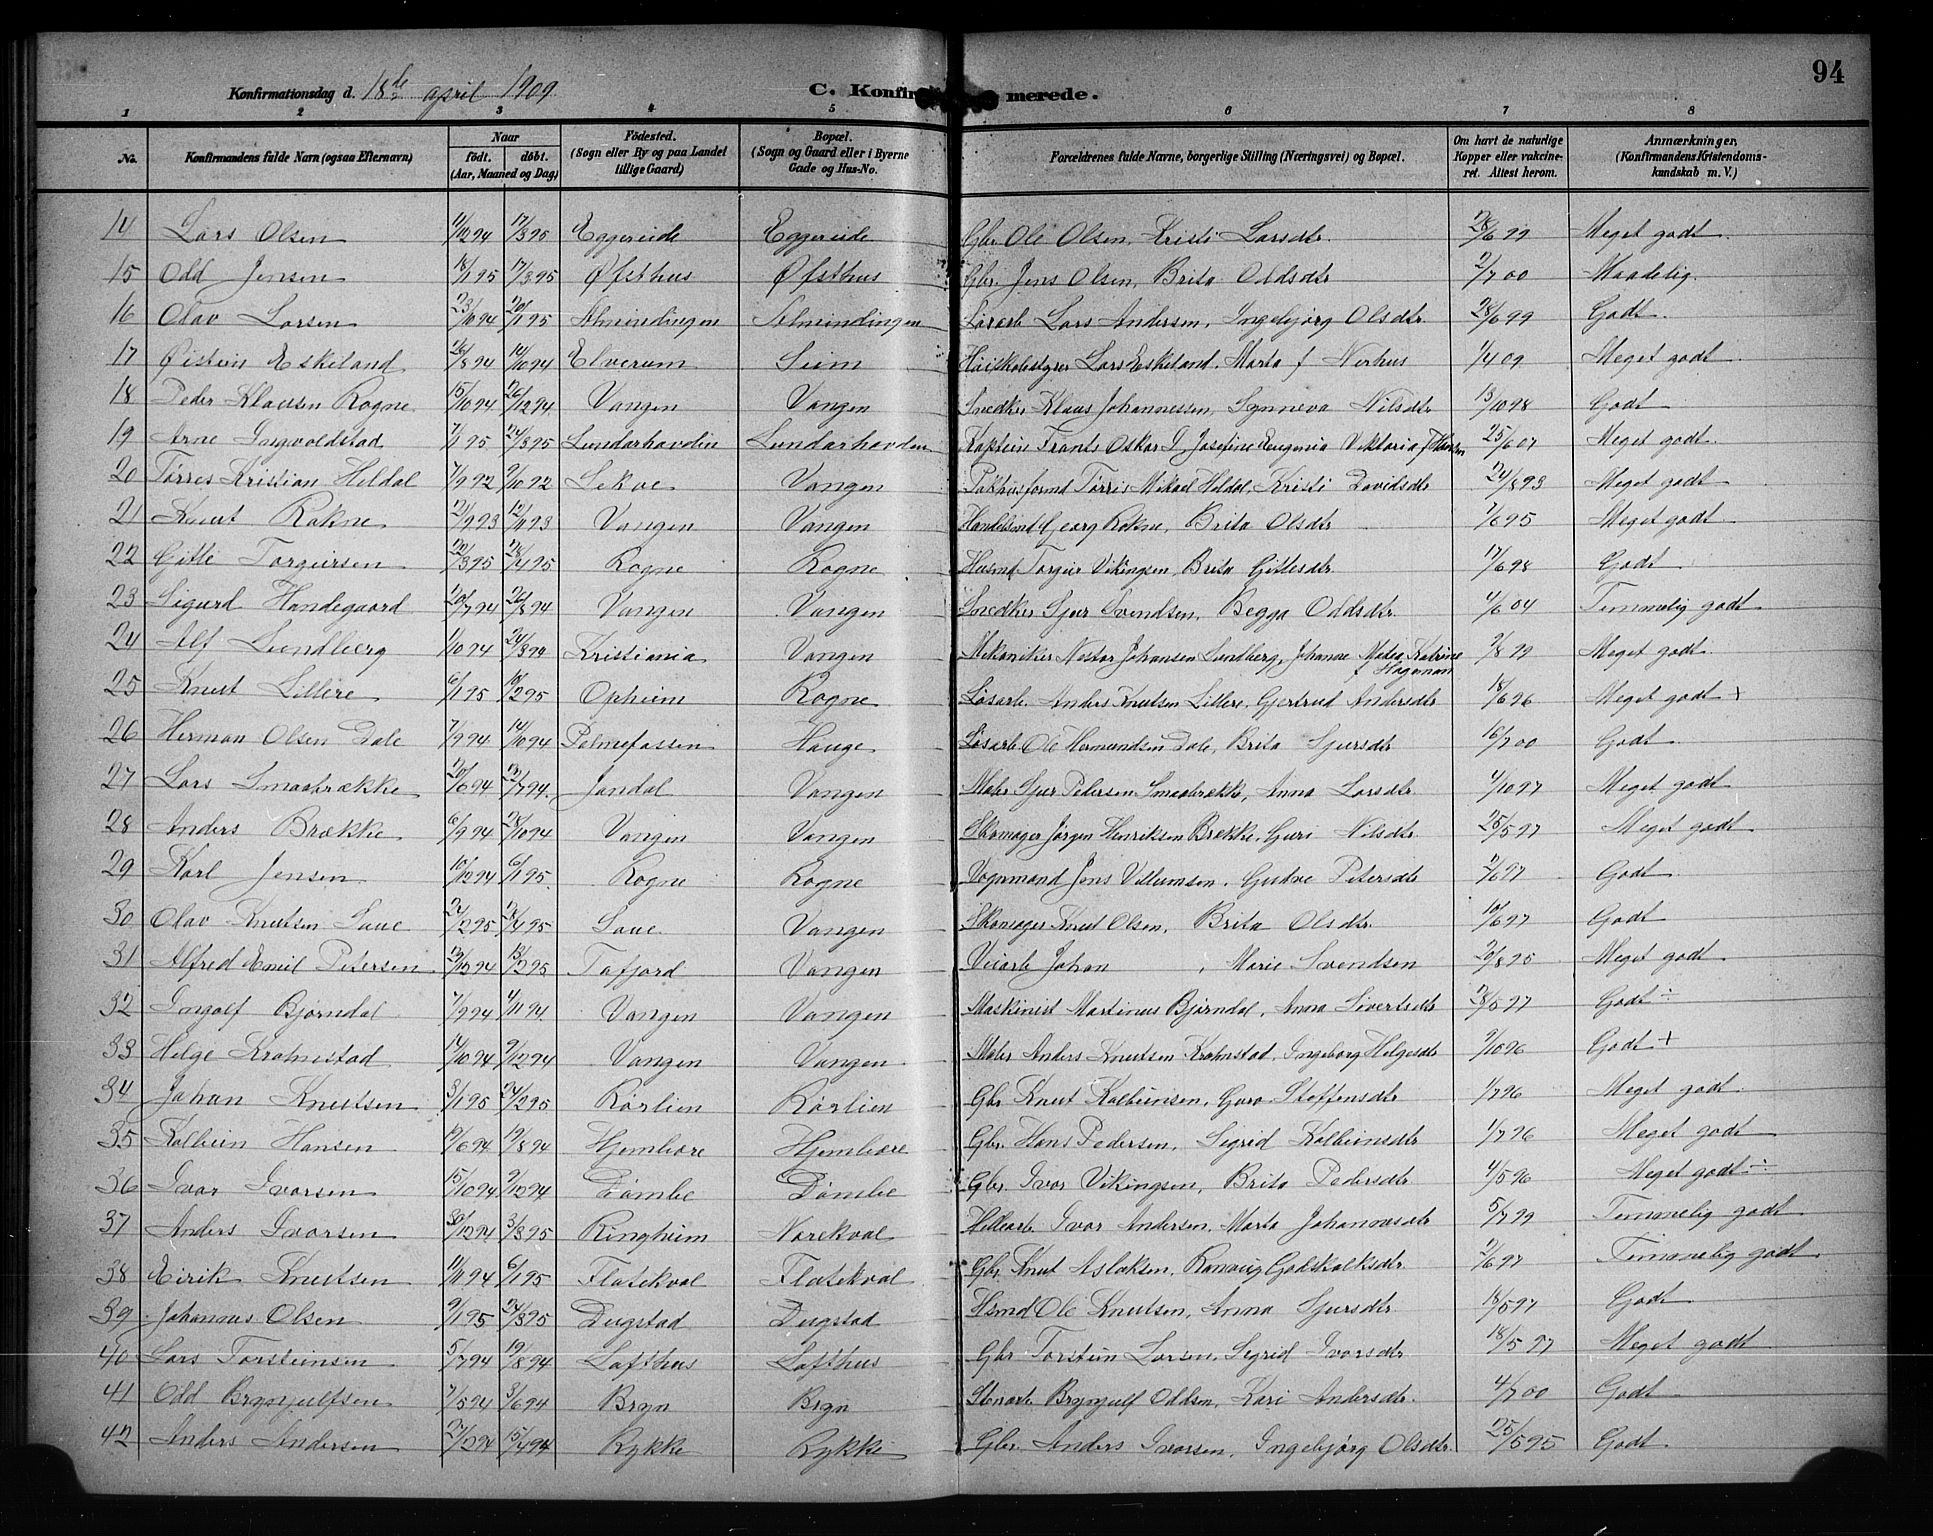 94
Konfirmationsdag d. 18de april 1909
C. Konfirmerede.
1 2 3 4 5 6 7 8
No. Konfirmandens fulde Navn (ogsaa Efternavn) Naar født. døbt. (Aar, Maaned og Dag) Fødested. (Sogn eller By og paa Landet tillige Gaard) Bopæl. (Sogn og Gaard eller i Byerne Gade og Hus-No. Forældrenes fulde Navne, borgerlige Stilling (Næringsvei) og Bopæl. Om havt de naturlige Kopper eller vakcineret. Attest herom. Anmærkninger. (Konfirmandens Kristendomskundskab m. V.)
14 Lars Olsen 11/10 94 17/3 95 Eggereide Eggereide Gbr. Ole Olsen, Kristi Larsdtr. 28/6 99 Meget godt
15 Odd Jensen 18/1 95 17/3 95 Øfsthus Øfsthus Gbr. Jens Olsen, Brita Oddsdtr 2/7 00 Maadelig
16 Olav Larsen 23/10 94 20/1 95 Almindingen Almindingen Løsarb Lars Andersen, Ingebjørg Olsdtr 28/6 99 Godt
17 Øistein Eskeland 26/8 94 14/10 94 Elverum Seim Høiskolestyrer Lars Eskeland, Marta f Nerhus 1/4 09 Meget godt
18 Peder Klausen Rogne 15/10 94 26/12 94 Vangen Vangen Snedker Klaus Johannessen, Synneva Nilsdtr 13/10 98 Godt
19 Arne Ingvoldstad 7/1 95 24/3 95 Lundarhovden Lundarhovden Kaptein Frants Oskar I, Josefine Eugenia Viktoria f Hansen 25/6 07 Meget godt
20 Tørres Kristian Heldal 7/9 92 9/10 92 Lekve Vangen Pakhusformd Tørris Mikael Heldal, Kristi Davidsdtr 24/8 93 Meget godt
21 Knut Rokne 21/9 93 12/11 93 Vangen Vangen Handelsmd Georg Rokne, Brita Olsdtr 7/6 95 Meget godt
22 Gitle Torgeirsen 20/3 95 28/4 95 Rogne Rogne Husmd Torgeir Vikingsen, Brita Gitlesdtr 17/6 98 Godt
23 Sigurd Handegaard 20/7 94 26/8 94 Vangen Vangen Snedker Sjur Svendsen, Begga Oddsdtr 4/6 04 Temmelig godt
24 Alf Lundberg 1/10 94 24/3 94 Kristiania Vangen Mekaniker Nestor Johansen Lundberg, Johanne Matea Katrine f Hageman 2/8 99 Meget godt
25 Knut Lillere 6/1 95 10/2 95 Opheim Rogne Løsarb. Anders Knutsen Lillere, Gjertrud Andersdtr 18/6 96 Meget godt +
26 Herman Olsen Dale 7/9 94 14/10 94 Palmefossen Hauge Løsarb Ole Hermundsen Dale, Brita Sjursdtr 16/7 00 Godt
27 Lars Smaabrække 20/6 94 29/7 94 Jondal Vangen Maler Sjur Pedersen Smaabrække, Anna Larsdtr 4/10 97 Meget godt
28 Anders Brække 6/9 94 28/10 94 Vangen Vangen Skomager Jørgen Henriksen Brække, Guri Nilsdtr 25/5 97 Meget godt
29 Karl Jensen 10/12 94 6/1 95 Rogne Rogne Vognmand Jens Villumsen, Gudve Petersdtr 2/6 97 Godt
30 Olav Knutsen Saue 22/2 95 28/4 95 Saue Vangen Skomager Knut Olsen, Brita Olsdtr 10/6 97 Godt
31 Alfred Emil Petersen 29/12 94 13/2 95 Tafjord Vangen Veiarb Johan , Marie Svendsen 20/8 95 Meget godt
32 Ingolf Bjørndal 7/9 94 4/11 94 Vangen Vangen Maskinist Martinus Bjørndal, Anna Sivertsdtr 28/5 97 Godt ÷
33 Helge Krohnstad 14/10 94 9/12 94 Vangen Vangen Maler Anders Knutsen Krohnstad, Ingeborg Helgesdtr 9/10 96 Godt +
34 Johan Knutsen 3/1 95 24/2 95 Rørlien Rørlien Gbr Knut Kolbeinsen, Guro Steffensdtr 1/7 96 Meget godt
35 Kolbein Hansen 19/6 94 19/8 94 Hjembøre Hjembøre Gbr. Hans Pedersen, Sigrid Kolbeinsdtr 1/7 96 Meget godt
36 Ivar Ivarsen 15/10 94 9/12 94 Dømbe Dømbe Gbr. Ivar Vikingsen, Brita Pedersdtr 4/5 96 Meget godt ÷
37 Anders Ivarsen 30/12 94 3/3 95 Ringheim Norekval Hellearb Ivar Andersen, Marta Johannesdtr 5/7 99 Temmelig godt
38 Eirik Knutsen 11/11 94 6/1 95 Flatekval Flatekval Gbr. Knut Aslaksen, Ranveig Godskalksdtr 2/6 97 Temmelig godt
39 Johannes Olsen 9/1 95 24/3 95 Dugstad Dugstad Hsmd Ole Knutsen, Anna Sjursdtr 18/5 97 Godt
40 Lars Torsteinsen 5/7 94 19/8 94 Lofthus Lofthus Gbr Torstein Larsen, Sigrid Ivarsdtr 18/5 97 Meget godt
41 Odd Brynjulfsen 7/5 94 3/6 94 Bryn Bryn Stenarb Brynjulf Oddsen, Kari Andersdtr. 4/7 00 Godt
42 Anders Andersen 27/2 94 15/4 94 Rykke Rykke Gbr Anders Ivarsen, Ingebjørg Olsdtr 25/5 95 Godt